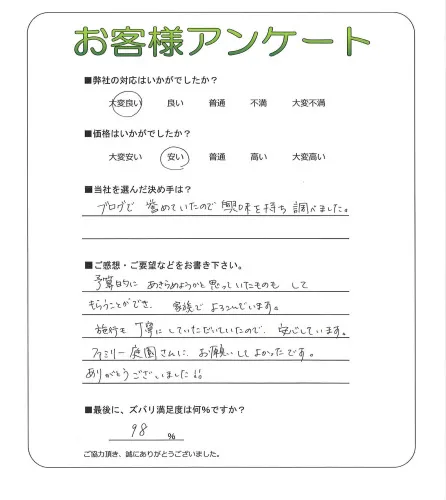 お客様アンケート
■弊社の対応はいかがでしたか？
大変良い 良い 普通 不満 大変不満
■価格はいかがでしたか？
大変安い 安い 普通 高い 大変高い
■当社を選んだ決め手は？
ブログで 誉めていたので 興味を持ち 調べました。
■ご感想・ご要望などをお書き下さい。
予算的に あきらめようかと思っていたものも して
もらうことができ、 家族で よろこんでいます。
施行も 丁寧に していただいていたので、 安心しています。
ファミリー庭園さんに お願いして よかったです。
ありがとうございました!!
■最後に、ズバリ満足度は何%ですか？
98 %
ご協力頂き、誠にありがとうございました。